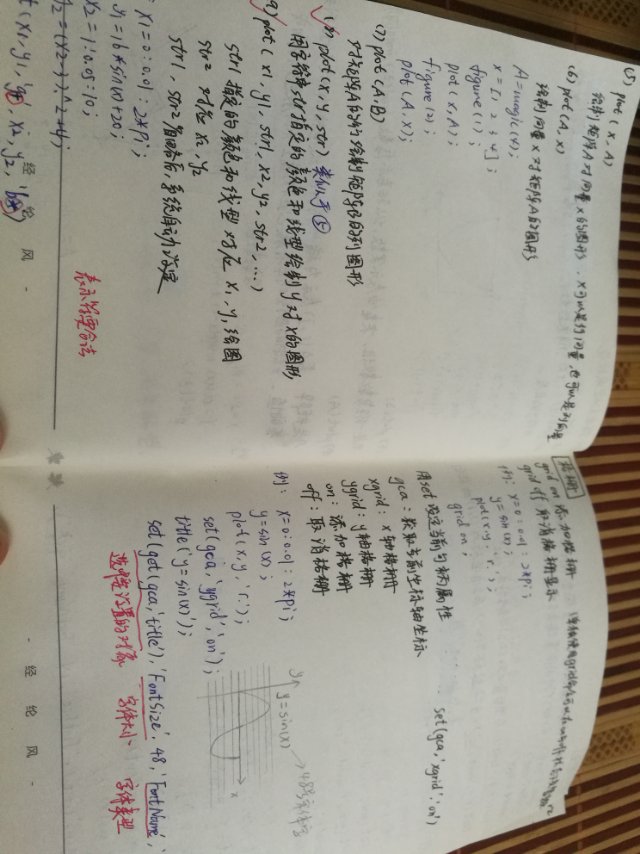 (5) plot(x,A)
绘制矩阵A对向量x的图形.x可以是行向量,也可以是列向量
(6) plot(A,x)
绘制向量x对矩阵A的图形
A=magic(4);
x=[1 2 3 4];
figure(1);
plot(x,A);
figure(2);
plot(A,x);
(7) plot(A,B)
对矩阵A的列绘制矩阵B的列图形
(8) plot(x,y,str) 类似于⑤
用字符串str指定的颜色和线型绘制y对x的图形
(9) plot(x1,y1,str1,x2,y2,str2,...)
str1指定的颜色和线型对应x1,y1绘图
str2对应x2,y2
str1,str2省略后,系统自动设定
x1=0:0.01:2*pi;
y1=16*sin(x1)+20;
x2=1:0.05:10;
y2=(x2-3).^2+4;
t(x1,y1,'g',x2,y2,'b*')
表示符要合法
经 纶 风
格栅
grid on 添加格栅
grid off 取消格栅显示
例: x=0:0.01:2*pi
y=sin(x);
plot(x,y,'r:');
grid on;
用set设定当前句柄属性
set(gca,'xgrid','on')
gca:获取当前坐标轴坐标
xgrid:x轴格栅
ygrid:y轴格栅
on:添加格栅
off:取消格栅
例: x=0:0.01:2*pi;
y=sin(x);
plot(x,y,'r:');
set(gca,'ygrid','on');
title('y=sin(x)');
set(get(gca,'title'),'FontSize',48,'FontName',
选择设置的对象 字体大小 字体类型
y
y=sin(x)
x
经 纶 风